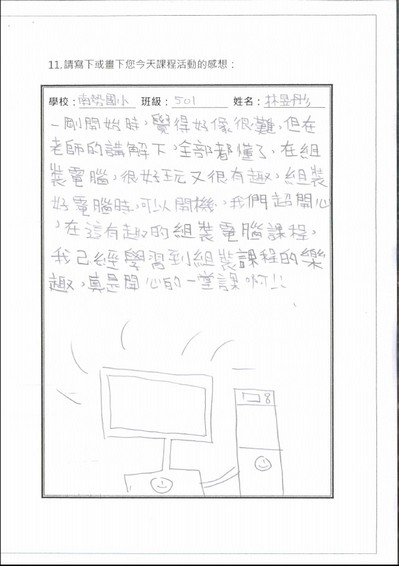 11.請寫下或畫下您今天課程活動的感想：
學校：南勢國小 班級：501 姓名：林昱彤
一剛開始時，覺得好像很難，但在
老師的講解下，全部都懂了，在組
裝電腦，很好玩又很有趣，組裝
好電腦時，可以開機、我們超開心
，在這有趣的組裝電腦課程，
我已經學習到組裝課程的樂
趣，真是開心的一堂課啊!!